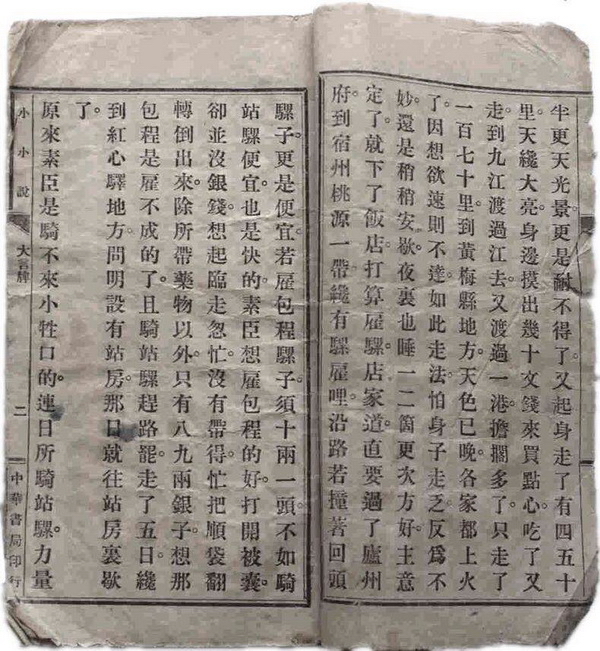 半更天光景更是耐不得了又起身走了有四五十
里天纔大亮身邊摸出幾十文錢來買點心吃了又
走到九江渡過江去又渡過一港擔擱多了只走了
一百七十里到黃梅縣地方天色已晚各家都上火
了因想欲速則不達如此走法怕身子走乏反爲不
妙還是稍稍安歇夜裏也睡一二箇更次方好主意
定了就下了飯店打算雇騾店家道直要過了廬州
府到宿州桃源一帶纔有騾雇哩沿路若撞著回頭
騾子更是便宜若雇包程騾子須十兩一頭不如騎
站騾便宜也是快的素臣想雇包程的好打開被囊
卻並沒銀錢想起臨走忽忙沒有帶得忙把順袋翻
轉倒出來除所帶藥物以外只有八九兩銀子想那
包程是雇不成的了且騎站騾趕路罷走了五日纔
到紅心驛地方問明設有站房那日就往站房裏歇
了
原來素臣是騎不來小牲口的連日所騎站騾力量
小小說
大言牌
二
中華書局印行